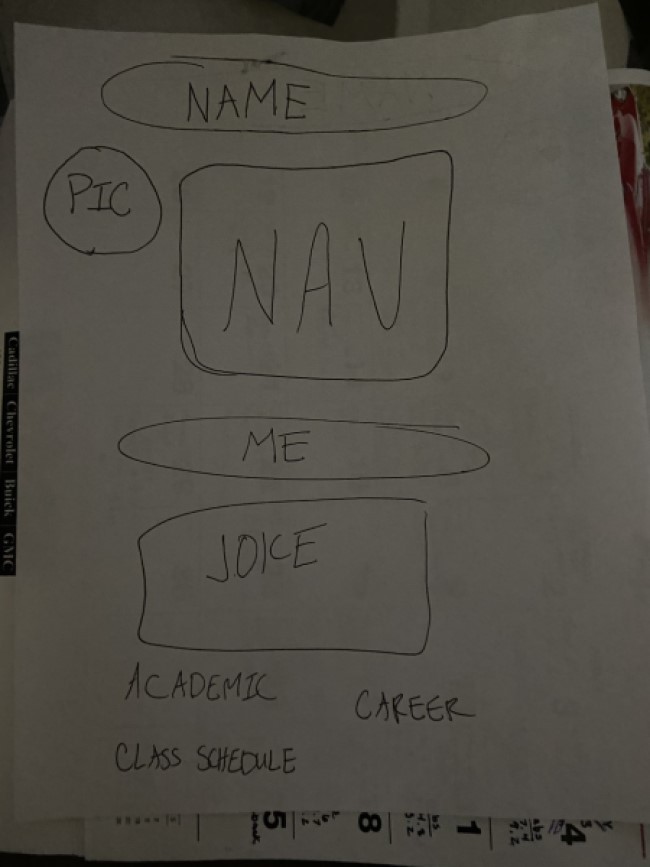 NAME
PIC
NAV
ME
JOICE
ACADEMIC
CAREER
CLASS SCHEDULE
Cadillac | Chevrolet | Buick | GMC
5
8
1
4